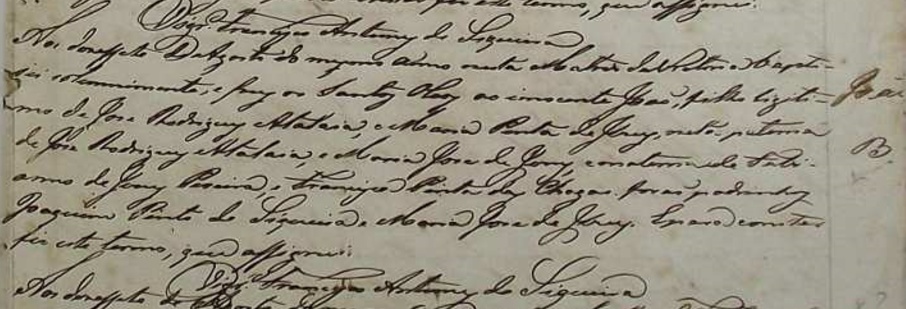 por este termo, que assignei.
Vigr.º Francisco Antunes de Siqueira
Aos dezessete D'Agosto do mesmo anno nesta Matriz da Victoria baptu-
sei solemnimente, e puz os Santos Oleos ao innocente João, filho legiti-
mo de Jose Rodrigues Atalaia, e Maria Pinta de Jesus, neto paterno
de Jose Rodrigues Atalaia, e Maria Jose de Jesus, e materno de Fabi-
anno de Jesus Pereira, e Francisca Pinta das Chagas. forão padrinhos
Joaquim Pinto de Siqueira e Maria Jose de Jesus. E para constar
fiz este termo, que assignei.
Vigr.º Francisco Antunes de Siqueira
Aos dezessete de
João
B.